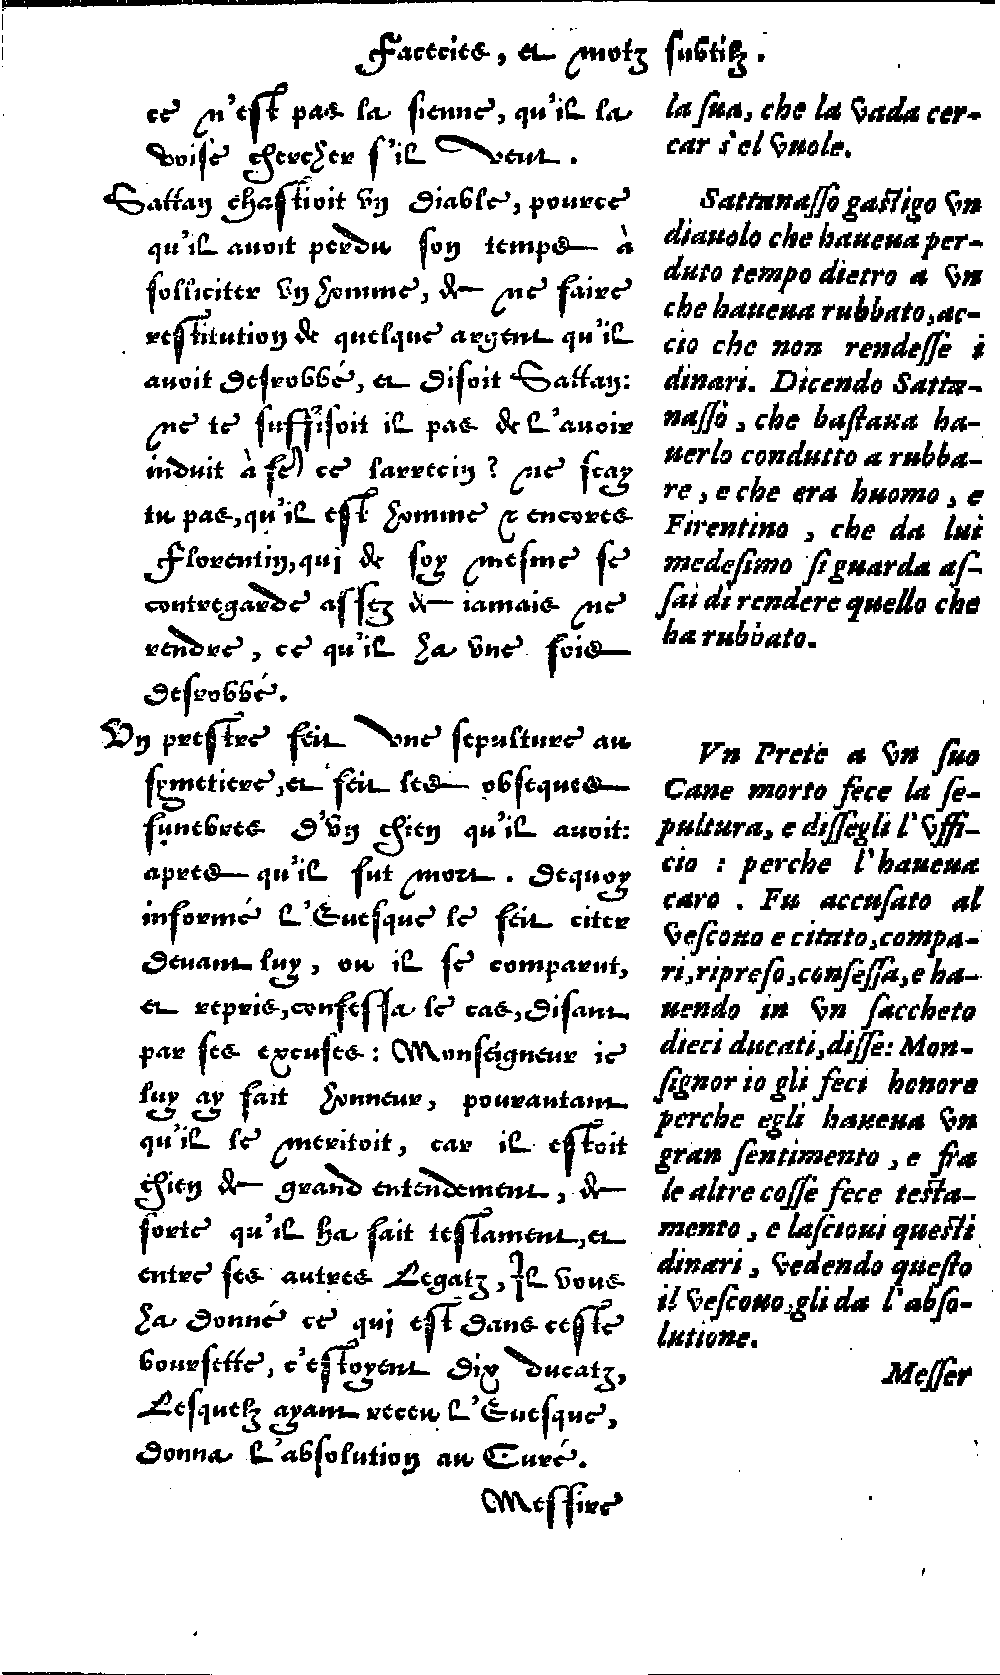 Facecies, et motz subtilz.
ce n'est pas la sienne, qu'il la
voise chercher s'il veut.
Sattan chastioit vn diable, pource
qu'il auoit perdu son temps à
solliciter vn homme, de ne faire
restitution de quelque argent qu'il
auoit desrobbé, et disoit Sattan:
ne te suffisoit il pas de l'auoir
induit à fē ce larrecin? ne scay
tu pas, qu'il est homme & encores
Florentin, qui de soy mesme se
contregarde assez de iamais ne
rendre, ce qu'il ha vne fois
desrobbé.
Vn prestre feit vne sepulture au
symetiere, et feit les obseques
funebres d'vn chien qu'il auoit:
apres qu'il fut mort. Dequoy
informé l'Euesque le feit citer
deuant luy, ou il se comparut,
et repris, confessa le cas, disant
par ses excuses: Monseigneur ie
luy ay fait honneur, pourautant
qu'il le meritoit, car il estoit
chien de grand entendement, de
sorte qu'il ha fait testament, et
entre ses autres Legatz, Il vous
ha donné ce qui est dans ceste
boursette, c'estoyent dix ducatz,
Lesquelz ayant receu l'Euesque,
donna l'absolution au Curé.
Messire
la sua, che la vada cer-
car s'el vuole.
Sattanasso gastigo vn
diauolo che haueua per-
duto tempo dietro a vn
che haueua rubbato, ac-
cio che non rendesse i
dinari. Dicendo Satta-
nasso, che bastaua ha-
uerlo condutto a rubba-
re, e che era huomo, e
Firentino, che da lui
medesimo si guarda as-
sai di rendere quello che
ha rubbato.
Vn Prete a vn suo
Cane morto fece la se-
pultura, e dissegli l'vffi-
cio: perche l'haueua
caro. Fu accusato al
vescouo e citato, compa-
ri, ripreso, confessa, e ha-
uendo in vn saccheto
dieci ducati, disse: Mon-
signor io gli feci honore
perche egli haueua vn
gran sentimento, e fra
le altre cosse fece testa-
mento, e lascioui questi
dinari, vedendo questo
il vescouo, gli da l'abso-
lutione.
Messer